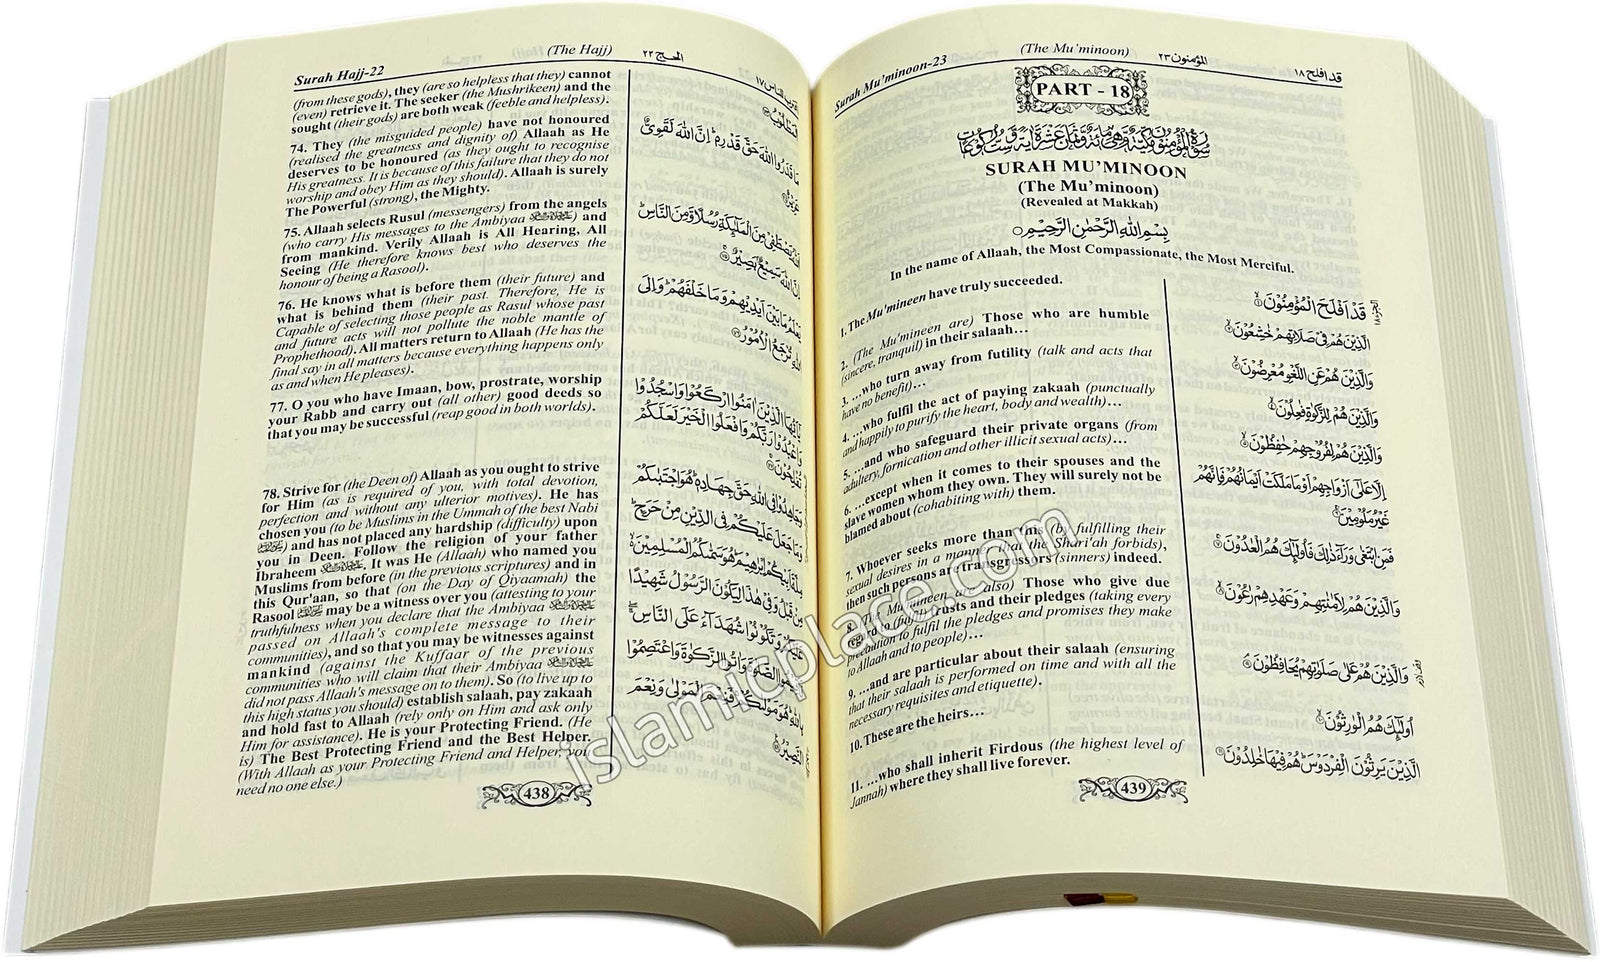 Surah Hajj-22 (The Hajj) الحج ٢٢
(from these gods), they (are so helpless that they) cannot
(even) retrieve it. The seeker (the Mushrikeen) and the
sought (their gods) are both weak (feeble and helpless).
74. They (the misguided people) have not honoured
(realised the greatness and dignity of) Allaah as He
deserves to be honoured (as they ought to recognise
His greatness. It is because of this failure that they do not
worship and obey Him as they should). Allaah is surely
The Powerful (strong), the Mighty.
75. Allaah selects Rusul (messengers) from the angels
(who carry His messages to the Ambiyaa) and
from mankind. Verily Allaah is All Hearing, All
Seeing (He therefore knows best who deserves the
honour of being a Rasool).
76. He knows what is before them (their future) and
what is behind them (their past. Therefore, He is
Capable of selecting those people as Rusul whose past
and future acts will not pollute the noble mantle of
Prophethood). All matters return to Allaah (He has the
final say in all matters because everything happens only
as and when He pleases).
77. O you who have Imaan, bow, prostrate, worship
your Rabb and carry out (all other) good deeds so
that you may be successful (reap good in both worlds).
78. Strive for (the Deen of) Allaah as you ought to strive
for Him (as is required of you, with total devotion,
perfection and without any ulterior motives). He has
chosen you (to be Muslims in the Ummah of the best Nabi
) and has not placed any hardship (difficulty) upon
you in Deen. Follow the religion of your father
Ibraheem . It was He (Allaah) who named you
Muslims from before (in the previous scriptures) and in
this Qur'aan, so that (on the Day of Qiyaamah) the
Rasool may be a witness over you (attesting to your
truthfulness when you declare that the Ambiyaa
passed on Allaah's complete message to their
communities), and so that you may be witnesses against
mankind (against the Kuffaar of the previous
communities who will claim that their Ambiyaa
did not pass Allaah's message on to them). So (to live up to
this high status you should) establish salaah, pay zakaah
and hold fast to Allaah (rely only on Him and ask only
Him for assistance). He is your Protecting Friend. (He
is) The Best Protecting Friend and the Best Helper.
(With Allaah as your Protecting Friend and Helper, you
need no one else.)
الْمَطْلُوْبُ
مَا قَدَرُوا اللّٰهَ حَقَّ قَدْرِهٖ اِنَّ اللّٰهَ لَقَوِىٌّ
عَزِيْزٌ
اَللّٰهُ يَصْطَفِىْ مِنَ الْمَلٰٓئِكَةِ رُسُلًا وَّمِنَ النَّاسِ
اِنَّ اللّٰهَ سَمِيْعٌۢ بَصِيْرٌ
يَعْلَمُ مَا بَيْنَ اَيْدِيْهِمْ وَمَا خَلْفَهُمْ وَاِلَى
اللّٰهِ تُرْجَعُ الْاُمُوْرُ
يٰٓاَيُّهَا الَّذِيْنَ اٰمَنُوا ارْكَعُوْا وَاسْجُدُوْا
وَاعْبُدُوْا رَبَّكُمْ وَافْعَلُوا الْخَيْرَ لَعَلَّكُمْ
تُفْلِحُوْنَ
وَجَاهِدُوْا فِى اللّٰهِ حَقَّ جِهَادِهٖ هُوَ اجْتَبٰىكُمْ
وَمَا جَعَلَ عَلَيْكُمْ فِى الدِّيْنِ مِنْ حَرَجٍ
مِلَّةَ اَبِيْكُمْ اِبْرٰهِيْمَ هُوَ سَمّٰىكُمُ الْمُسْلِمِيْنَ
مِنْ قَبْلُ وَفِىْ هٰذَا لِيَكُوْنَ الرَّسُوْلُ شَهِيْدًا
عَلَيْكُمْ وَتَكُوْنُوْا شُهَدَآءَ عَلَى النَّاسِ
فَاَقِيْمُوا الصَّلٰوةَ وَاٰتُوا الزَّكٰوةَ وَاعْتَصِمُوْا
بِاللّٰهِ هُوَ مَوْلٰىكُمْ فَنِعْمَ الْمَوْلٰى وَنِعْمَ
النَّصِيْرُ
438
Surah Mu'minoon-23 (The Mu'minoon) المؤمنون ٢٣ قد افلح ١٨
PART - 18
SURAH MU'MINOON
(The Mu'minoon)
(Revealed at Makkah)
بِسْمِ اللّٰهِ الرَّحْمٰنِ الرَّحِيْمِ
In the name of Allaah, the Most Compassionate, the Most Merciful.
1. The Mu'mineen have truly succeeded.
2. (The Mu'mineen are) Those who are humble
(sincere, tranquil) in their salaah…
3. …who turn away from futility (talk and acts that
have no benefit)…
4. …who fulfil the act of paying zakaah (punctually
and happily to purify the heart, body and wealth)…
5. …and who safeguard their private organs (from
adultery, fornication and other illicit sexual acts)…
6. …except when it comes to their spouses and the
slave women whom they own. They will surely not be
blamed about (cohabiting with) them.
7. Whoever seeks more than this (by fulfilling their
sexual desires in a manner that the Shari'ah forbids),
then such persons are transgressors (sinners) indeed.
8. (The Mu'mineen are also) Those who give due
regard to (fulfil) trusts and their pledges (taking every
precaution to fulfil the pledges and promises they make
to Allaah and to people)…
9. …and are particular about their salaah (ensuring
that their salaah is performed on time and with all the
necessary requisites and etiquette).
10. These are the heirs…
11. …who shall inherit Firdous (the highest level of
Jannah) where they shall live forever.
قَدْ اَفْلَحَ الْمُؤْمِنُوْنَ
الَّذِيْنَ هُمْ فِىْ صَلَاتِهِمْ خٰشِعُوْنَ
وَالَّذِيْنَ هُمْ عَنِ اللَّغْوِ مُعْرِضُوْنَ
وَالَّذِيْنَ هُمْ لِلزَّكٰوةِ فٰعِلُوْنَ
وَالَّذِيْنَ هُمْ لِفُرُوْجِهِمْ حٰفِظُوْنَ
اِلَّا عَلٰٓى اَزْوَاجِهِمْ اَوْ مَا مَلَكَتْ اَيْمَانُهُمْ فَاِنَّهُمْ
غَيْرُ مَلُوْمِيْنَ
فَمَنِ ابْتَغٰى وَرَآءَ ذٰلِكَ فَاُولٰٓئِكَ هُمُ الْعٰدُوْنَ
وَالَّذِيْنَ هُمْ لِاَمٰنٰتِهِمْ وَعَهْدِهِمْ رٰعُوْنَ
وَالَّذِيْنَ هُمْ عَلٰى صَلَوٰتِهِمْ يُحَافِظُوْنَ
اُولٰٓئِكَ هُمُ الْوٰرِثُوْنَ
الَّذِيْنَ يَرِثُوْنَ الْفِرْدَوْسَ هُمْ فِيْهَا خٰلِدُوْنَ
439
islamicplace.com